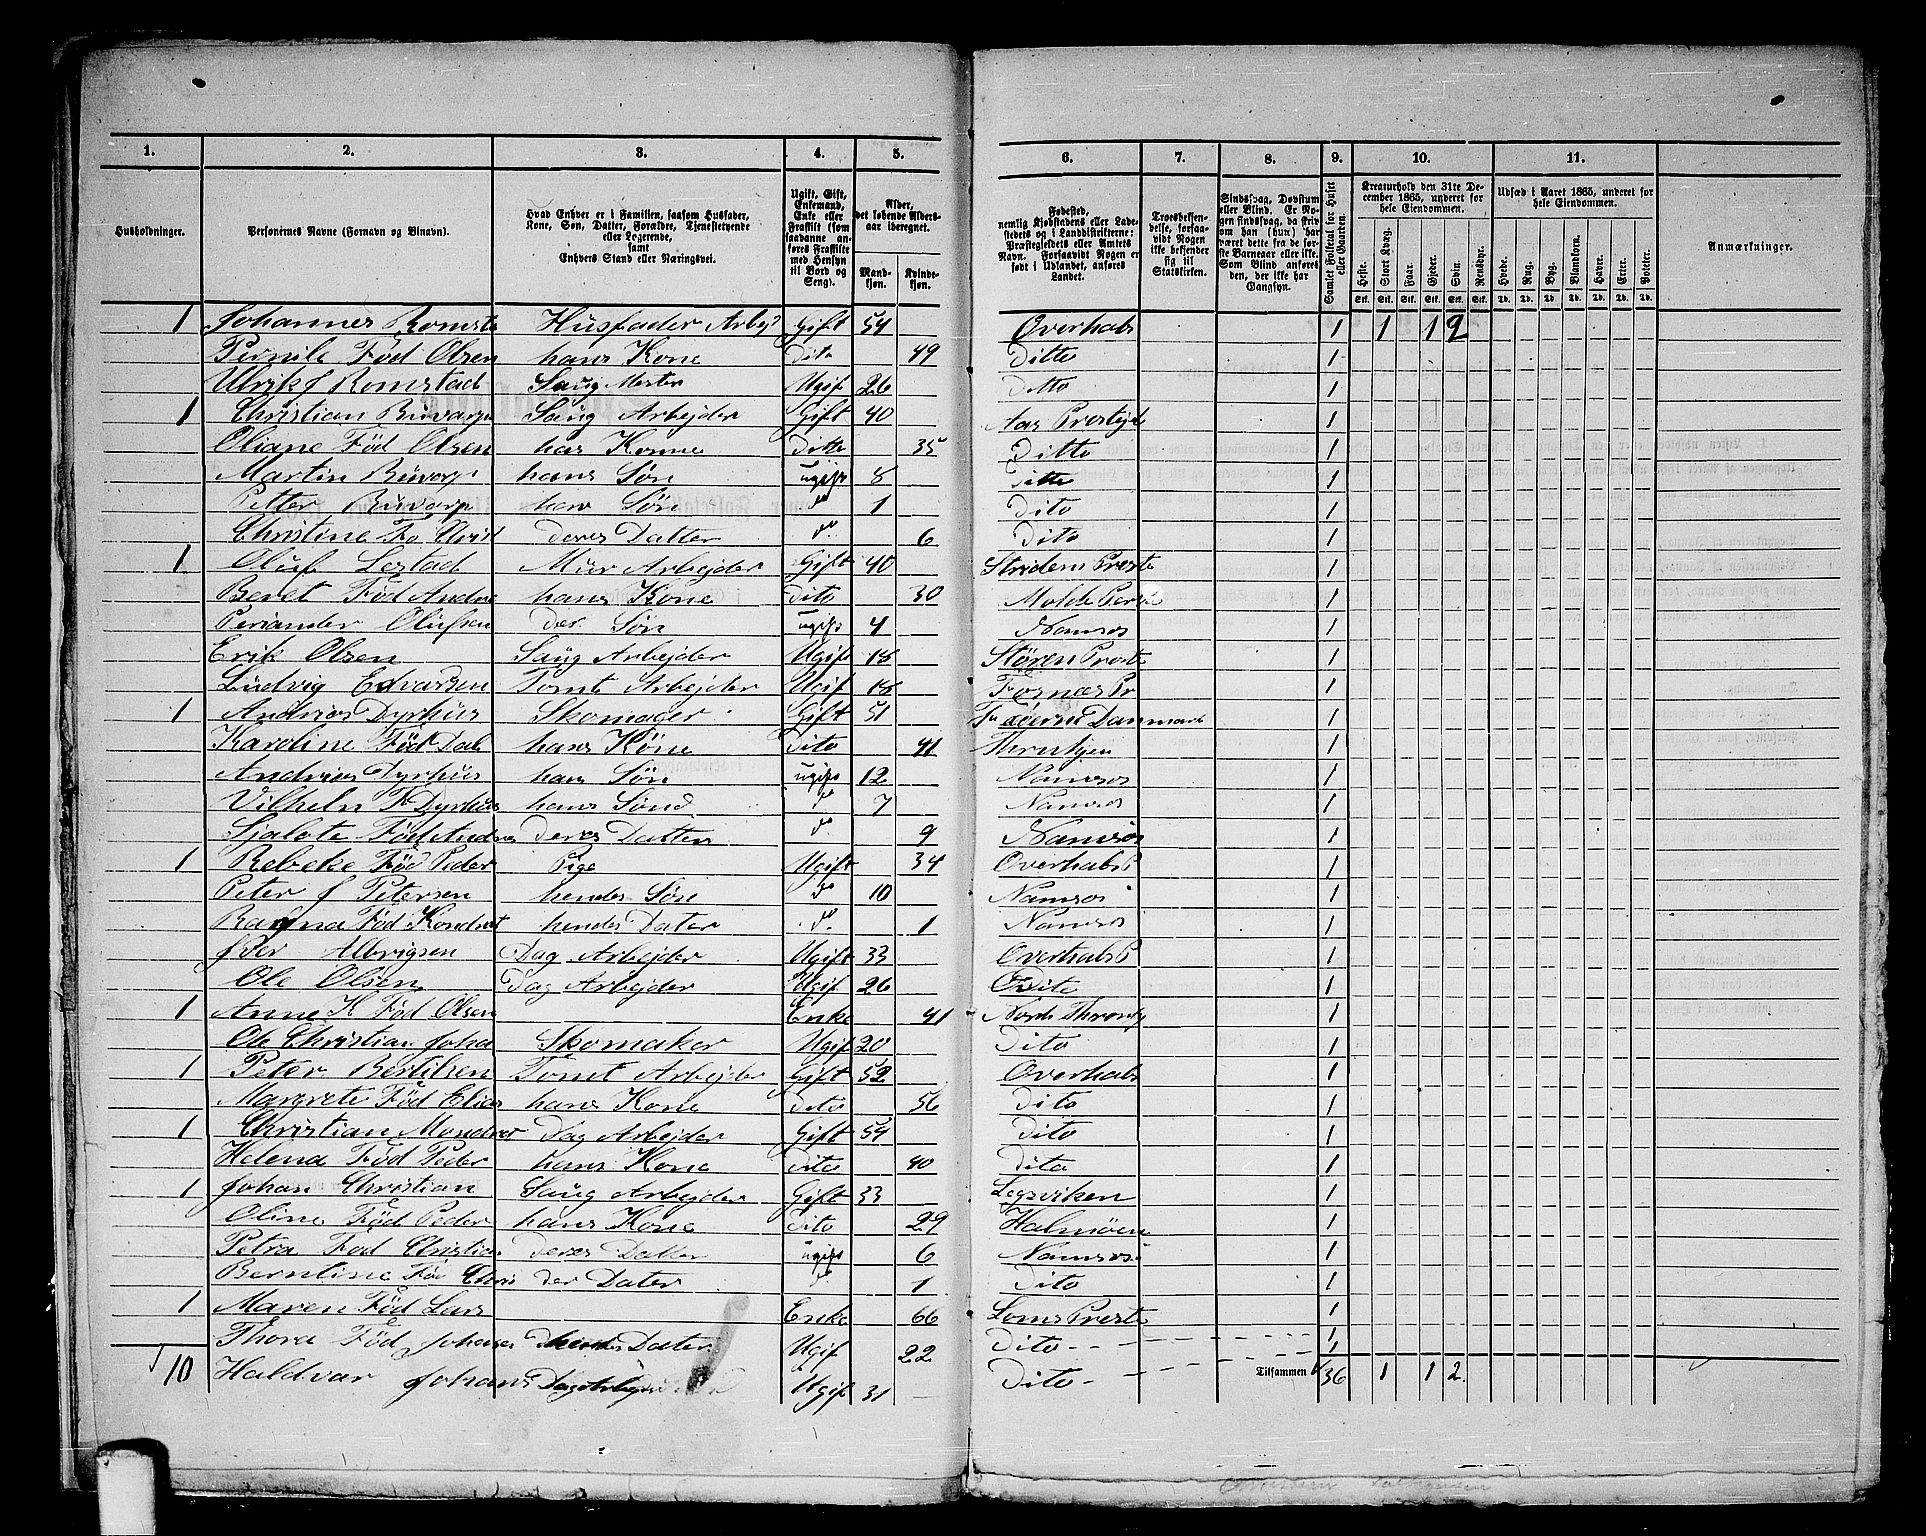 1. 2. 3. 4. 5. 6. 7. 8. 9. 10. 11.
Husholdninger.
Personernes Navne (Fornavn og Binavn).
Hvad Enhver er i Familien, saasom Husfader, Kone, Søn, Datter, Forældre, Tjenestetyende eller Logerende, samt Enhvers Stand eller Næringsvei.
Ugift, Gift, Enkemand, Enke eller Fraskilt (som saadanne anføres Fraskilte med Hensyn til Bord og Seng).
Alder, det løbende Alders-aar iberegnet.
Mand-kjøn. Kvinde-kjøn.
Fødested, nemlig Kjøbstadens eller Ladestedets og i Landdistrikterne: Præstegjeldets eller Amtets Navn. Forsaavidt Nogen er født i Udlandet, anføres Landet.
Troesbekjendelse, forsaavidt Nogen ikke bekjender sig til Statskirken.
Sindssvag, Døvstum eller Blind. Er Nogen sindssvag, da hvorvidt han (hun) har været dette fra de første Barneaar eller ikke. Som Blind anføres den, der ikke har Gangsyn.
Samlet Folketal for Huset eller Gaarden.
Kreaturhold den 31te December 1865, underet for hele Eiendommen.
Heste. Stort Kvæg. Faar. Gjeder. Svin. Rensdyr.
Udsæd i Aaret 1865, underet for hele Eiendommen.
Hvede. Rug. Byg. Blandkorn. Havre. Erter. Poteter.
Anmærkninger.
1 Johannes Romsta Husfader Arbej Gift 54 Overhals 1 1 1 2
Pernile Fød Olsen hans Kone Dito 49 Ditto 1
Ulrik J Romstad Saug Mester Ugif 26 Ditto 1
1 Christian Buvarp Saug Arbejder Gift 40 Aas Prestejd 1
Oliane Fød Olsen has Konne Ditto 35 Ditto 1
Martin Buvarp hans Søn ugift 8 Ditte 1
Petter Buvarp hans Søn do 1 Dito 1
Christine Fø Christ deres Datter do 6 Dito 1
1 Oluf Lestad Mur Arbejder Gift 40 Strinden Preste 1
Beret Fød Andre hans Kone Dito 30 Molde 1
Periander Olufsen der Søn ugift 4 Namsos 1
Erik Olsen Saug Arbejder Ugift 18 Støren Preste 1
Ludvig Edvarsen Tomt Arbejder Ugif 18 Fosnæs Pr 1
1 Andrias Dyrhus Skomager Gift 51 Danmark 1
Karoline Fød Dal hans Kone Dito 41 Thrntjen 1
Andrias Dyrhus hans Søn ugift 12 Namsos 1
Vilhelm F Dyrhus hans Sønd do 7 Namsos 1
Sjalote Fød Andreas Deres Datter do 9 Namsos 1
1 Rebeke Fød Peder Pige Ugift 34 Overhals P 1
Peter J Petersen hendes Søn do 10 Namsos 1
Ragna Fød Kondrat hendes Dater do 1 Namsos 1
Per Albrigsen Dag Arbejder Ugift 33 Overhals P 1
Ole Olsen Dag Arbejder Ugif 26 Dito 1
1 Anne K Fød Olsen Enke 41 Nordr Throndj 1
Ole Christian Joha Skomaker Ugif 20 Dito 1
1 Peter Bertilsen Tomt Arbejder Gift 52 Overhals 1
Margrete Fød Elias hans Kone Dito 56 Dito 1
1 Christian Dag Arbejder Gift 54 Dito 1
Helena Fød Peder hans Kone Dito 40 Dito 1
1 Johan Christian Saug Arbejder Gift 33 Legsviken 1
Oline Fød Peder hans Kone Dito 29 Halmøen 1
Petra Fød Christian deres Datter ugift 6 Namsos 1
Berntine Fød Chris der Dater do 1 Dito 1
1 Maren Fød Lars Enke 66 Loms Preste 1
Thora Fød Johanes hendes Dater Ugif 22 Dito 1
10 Haldvar Johans Dag Ugif 31 Dito Tilsammen 36 1 1 2